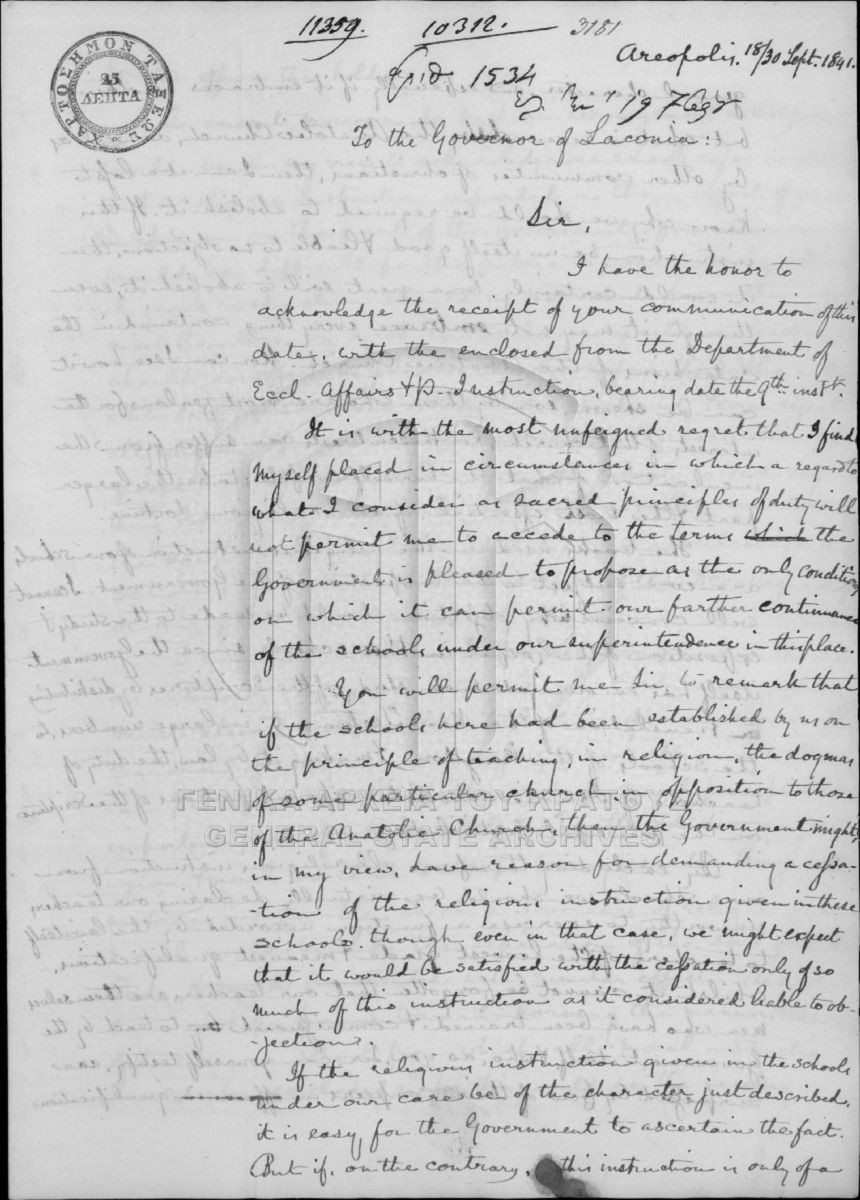 11359. 10312. 3181
Areopolis. 18/30 Sept. 1841.
ΧΑΡΤΟΣΗΜΟΝ ΤΑΞΕΩΣ
25
ΛΕΠΤΑ
1534
To the Governor of Laconia:
Sir,
I have the honor to
acknowledge the receipt of your communication of this
date, with the enclosed from the Department of
Eccl. Affairs & P. Instruction, bearing date the 9th inst.
It is with the most unfeigned regret that I find
myself placed in circumstances in which a regard to
what I consider as sacred principles of duty will
not permit me to accede to the terms which the
Government is pleased to propose as the only condition
on which it can permit our farther continuance
of the schools under our superintendence in this place.
You will permit me Sir, to remark that
if the schools here had been established by us on
the principle of teaching, in religion, the dogmas
of some particular church in opposition to those
of the Anatolic Church, then the Government might,
in my view, have reason for demanding a cessa-
-tion of the religious instruction given in these
schools, though even in that case, we might expect
that it would be satisfied with the cessation only of so
much of this instruction as it considered liable to ob-
-jection.
If the religious instruction given in the schools
under our care be of the character just described,
it is easy for the Government to ascertain the fact.
But if, on the contrary, this instruction is only of a
ΓΕΝΙΚΑ ΑΡΧΕΙΑ ΤΟΥ ΚΡΑΤΟΥΣ
GENERAL STATE ARCHIVES